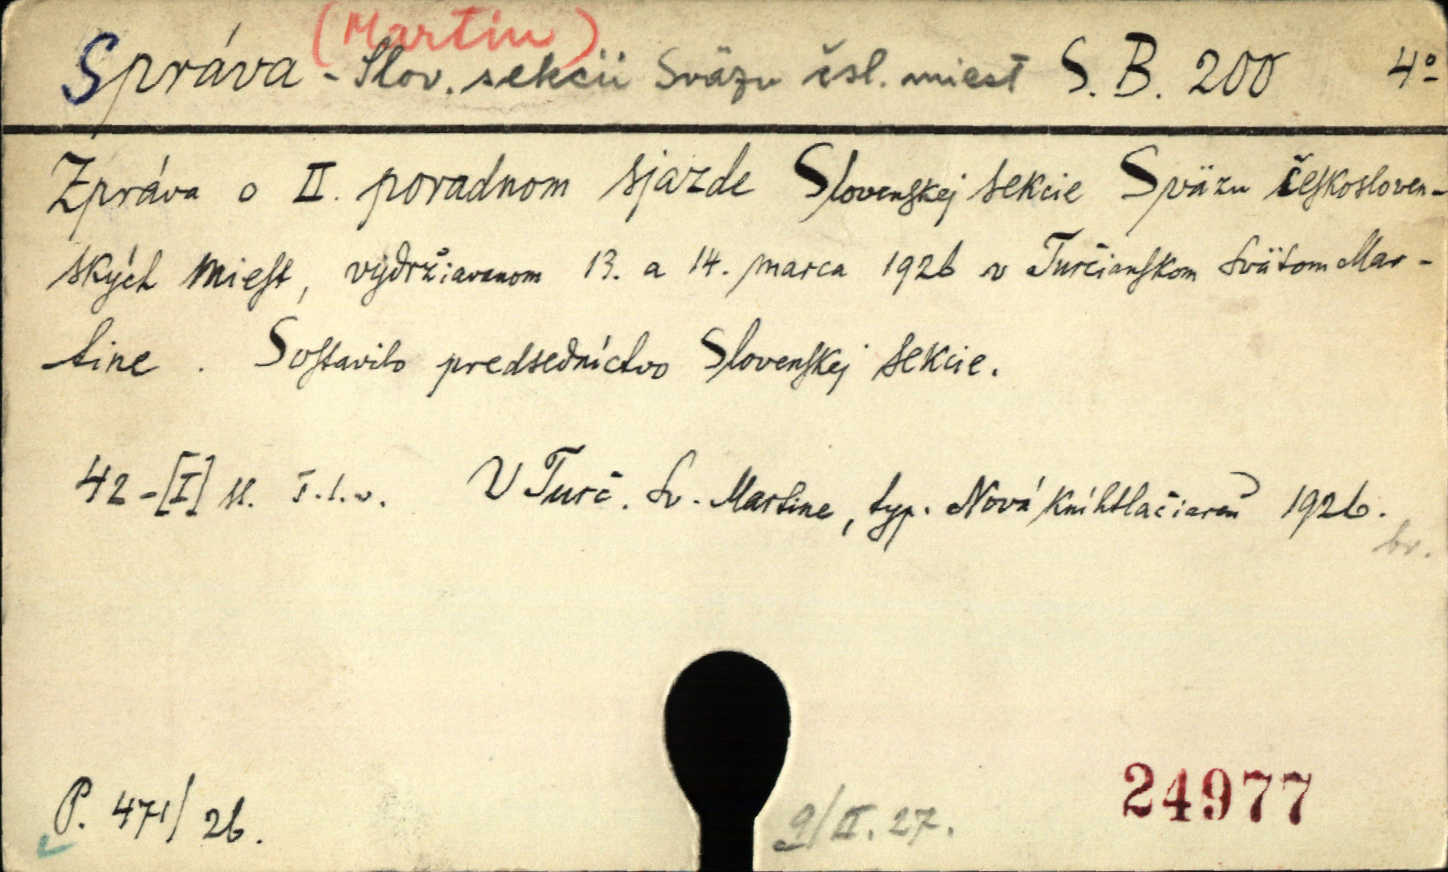 (Martin)
Správa - Slov. sekcii Sväzu čsl. miest S. B. 200 4º
Zpráva o II. poradnom sjazde Slovenskej sekcie Sväzu českosloven-
ských miest, vydržiavanom 13. a 14. marca 1926 v Turčianskom Svätom Mar-
tine . Sostavilo predsedníctvo Slovenskej sekcie.
42-[I] st. 
V Turč. Sv. Martine, typ. Nová kníhtlačiareň 1926.
br.
P. 471/26.
9/II. 27.
24977